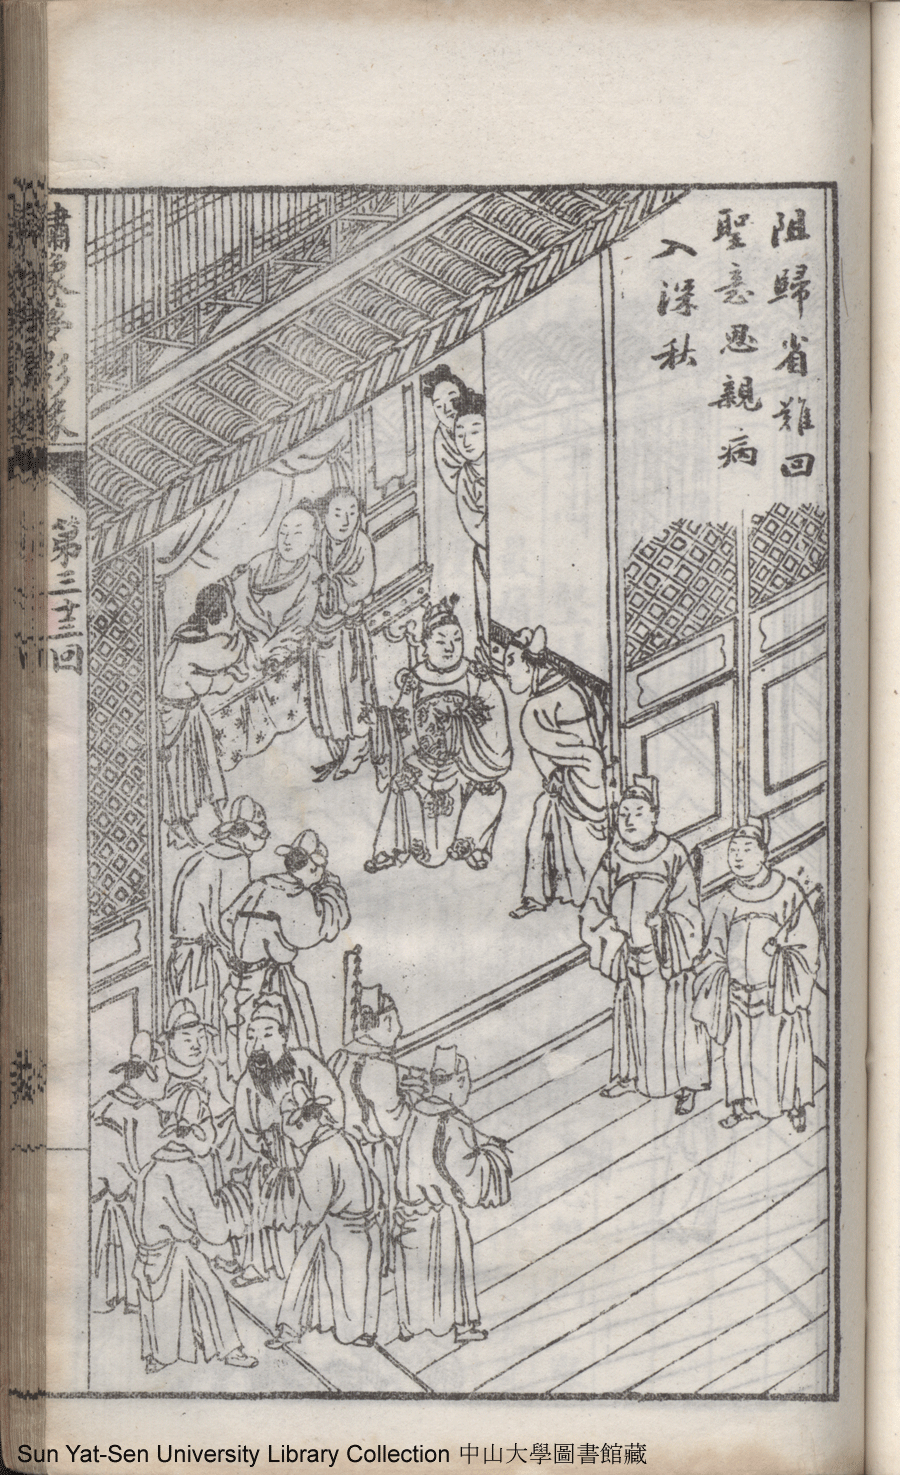 阻歸省難回
聖意思親病
入深秋
繡像夢影緣
第三十三回
Sun Yat-Sen University Library Collection 中山大學圖書館藏